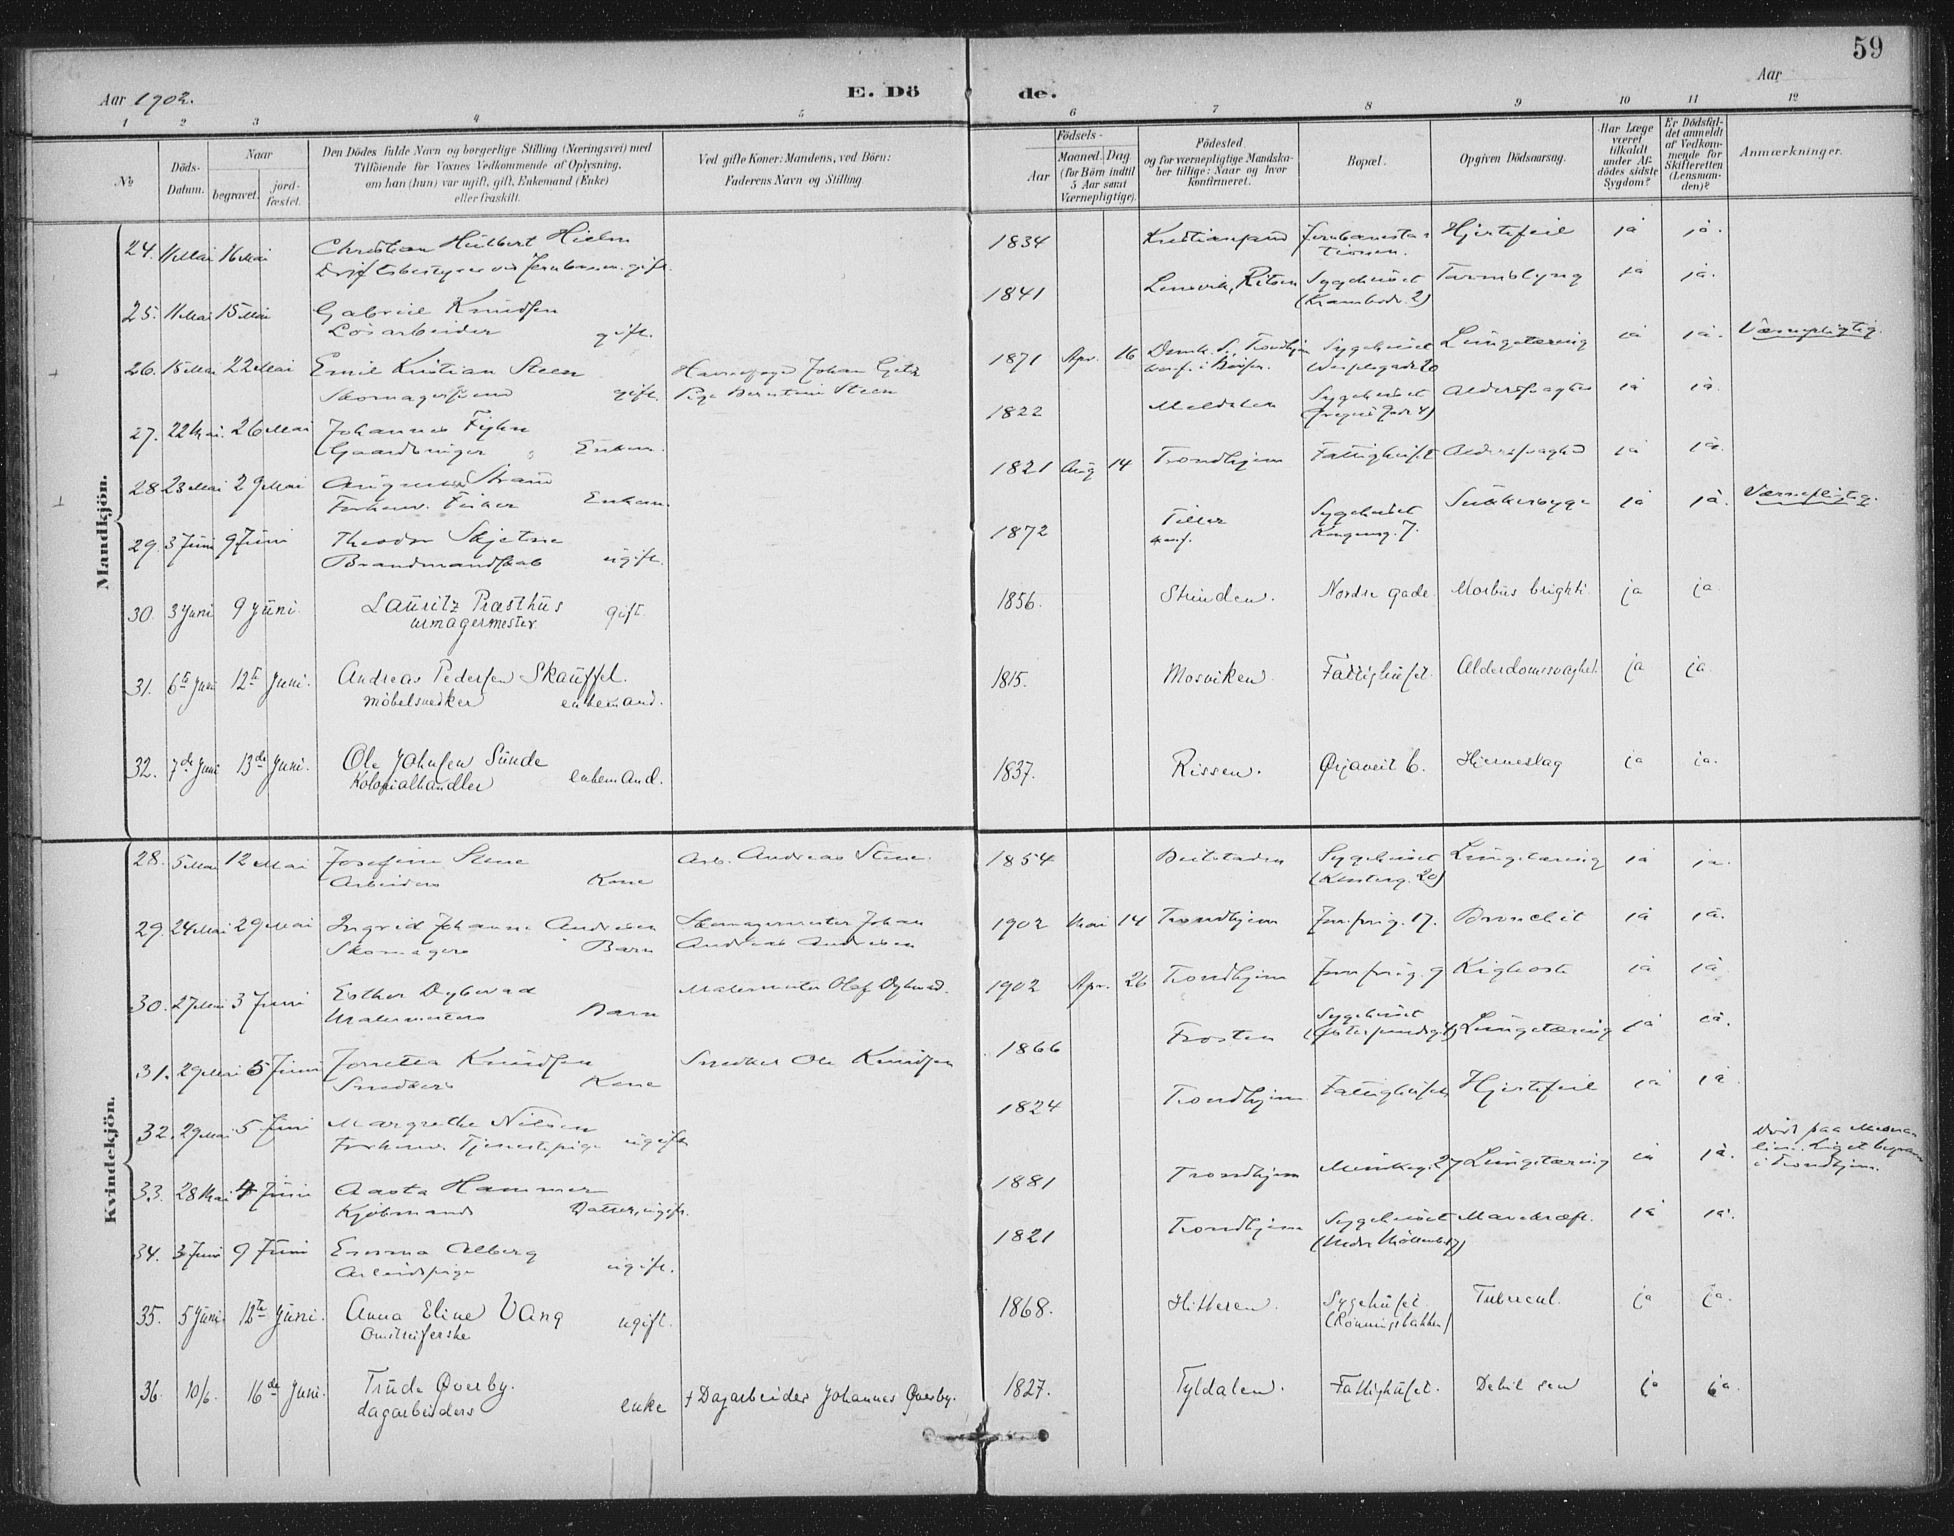 59
Aar 1902.
E. Dö
de.
Aar
1 2 3 4 5 6 7 8 9 10 11 12
No
Döds-Datum.
Naar
begravet.
jord-fæstet.
Den Dödes fulde Navn og borgerlige Stilling (Næringsvei) med
Tilföiende for Voxnes Vedkommende af Oplysning,
om han (hun) var ugift, gift, Enkemand (Enke)
eller fraskilt.
Ved gifte Koner: Mandens, ved Börn:
Faderens Navn og Stilling
Födsels-
Aar
Maaned. Dag
(for Börn indtil
5 Aar samt
Værnepligtige).
Födested
og for værnepligtige Mandska-
ber tillige: Naar og hvor
konfirmeret.
Bopæl.
Opgiven Dödsaarsag.
Har Læge
været
tilkaldt
under Af-
dödes sidste
Sygdom?
Er Dödsfal-
det anmeldt
af Vedkom-
mende for
Skifteretten
(Lensman-
den)?
Anmærkninger.
Mandkjön.
24. 11 Mai 16 Mai Christian Hielm 1834 Kristiansand Jernbanesta- Hjertefeil ja ja.
Driftsbestyrer ved Jernbanen. gift. tionen.
25. 11 Mai 15 Mai Gabriel Knudsen 1841 Lensvik, Rissen Sygehuset Tarmslyng ja ja.
Lösarbeider gift.
26. 15 Mai 22 Mai Emil Kristian Steen Johan 1871 Apr. 16 Domk. S., Trondhjem Sygehuset Lungetæring ja ja. Værnepligtig.
Skomagersvend gift. Pige Berntine Steen
27. 22 Mai. 26 Mai Johannes 1822 Meldalen Sygehuset Aldersvaghed ja ja.
Gaardbruger Enkem.
28 23 Mai 29 Mai August Strand 1821 Aug 14 Trondhjem Fattighuset Aldersvaghed ja ja.
Forhenv. Enkem.
29. 3 Juni 9 Juni Theodor Skjetne 1872 Tiller Sygehuset Sukkersyge ja ja. Værnepligtig.
Brandmandskab ugift. konf. Kongensg. 7.
30. 3 Juni 9 Juni. Lauritz Præsthus 1856. Strinden. Nordre gade Morbus brighti ja ja.
urmagermester gift.
31. 6te Juni 12te Juni. Andreas Pedersen Skauffel. 1815. Mosviken. Fattighuset. Alderdomssvaghet. ja ja
möbelsnedker enkemand.
32. 7de Juni 13de Juni. Ole Johnsen Sunde 1837. Rissen. Ørjaveit 6. Hjerneslag ja ja.
Kolonialhandler enkemand.
Kvindekjön.
28. 5 Mai 12 Mai Josefine Stene Arb. Andreas Stene. 1854 Beitstaden Sygehuset Lungetæring ja ja.
Arbeiders Kone
29. 24 Mai 29 Mai Ingrid Johanne Andresen Skomagermester Johan 1902 Mai 14 Trondhjem 17. Bronchit ja ja.
Skomagers Barn Andreas Andresen
30. 27 Mai 3 Juni Esther Dybwad Malermester Olaf Dybwad. 1902 Apr. 26 Trondhjem 9 Kighoste ja ja
Malermesters Barn
31. 29 Mai 5 Juni Knudsen Snedker Ole Knudsen 1866 Frosten Sygehuset Lungetæring ja ja.
Snedkers Kone
32. 29 Mai 5 Juni Margrethe Nilsen 1824 Trondhjem Fattighuset Hjertefeil ja ja.
Forhenv. Tjenestepige ugift
33. 28 Mai 4 Juni Aasta Hammer 1881 Trondhjem Munkeg. 27 Lungetæring ja ja. Död paa
Kjöbmands Datter, ugift. Liget begravet
i Trondhjem.
34. 3 Juni 9 Juni Emma Alberg 1821 Trondhjem Sygehuset Mavekræft. ja ja.
Arbeidspige ugift.
35. 5 Juni 12te Juni. Anna Eline Vang 1868. Hitteren. Sygehuset Tubercul. ja ja.
ugift. (Rönningsbakken)
36. 10/6. 16de Juni. Trude Qverby. † Dagarbeider Johannes Qverby. 1827. Tyldalen. Fattighuset. Debil sen ja ja.
dagarbeiders enke